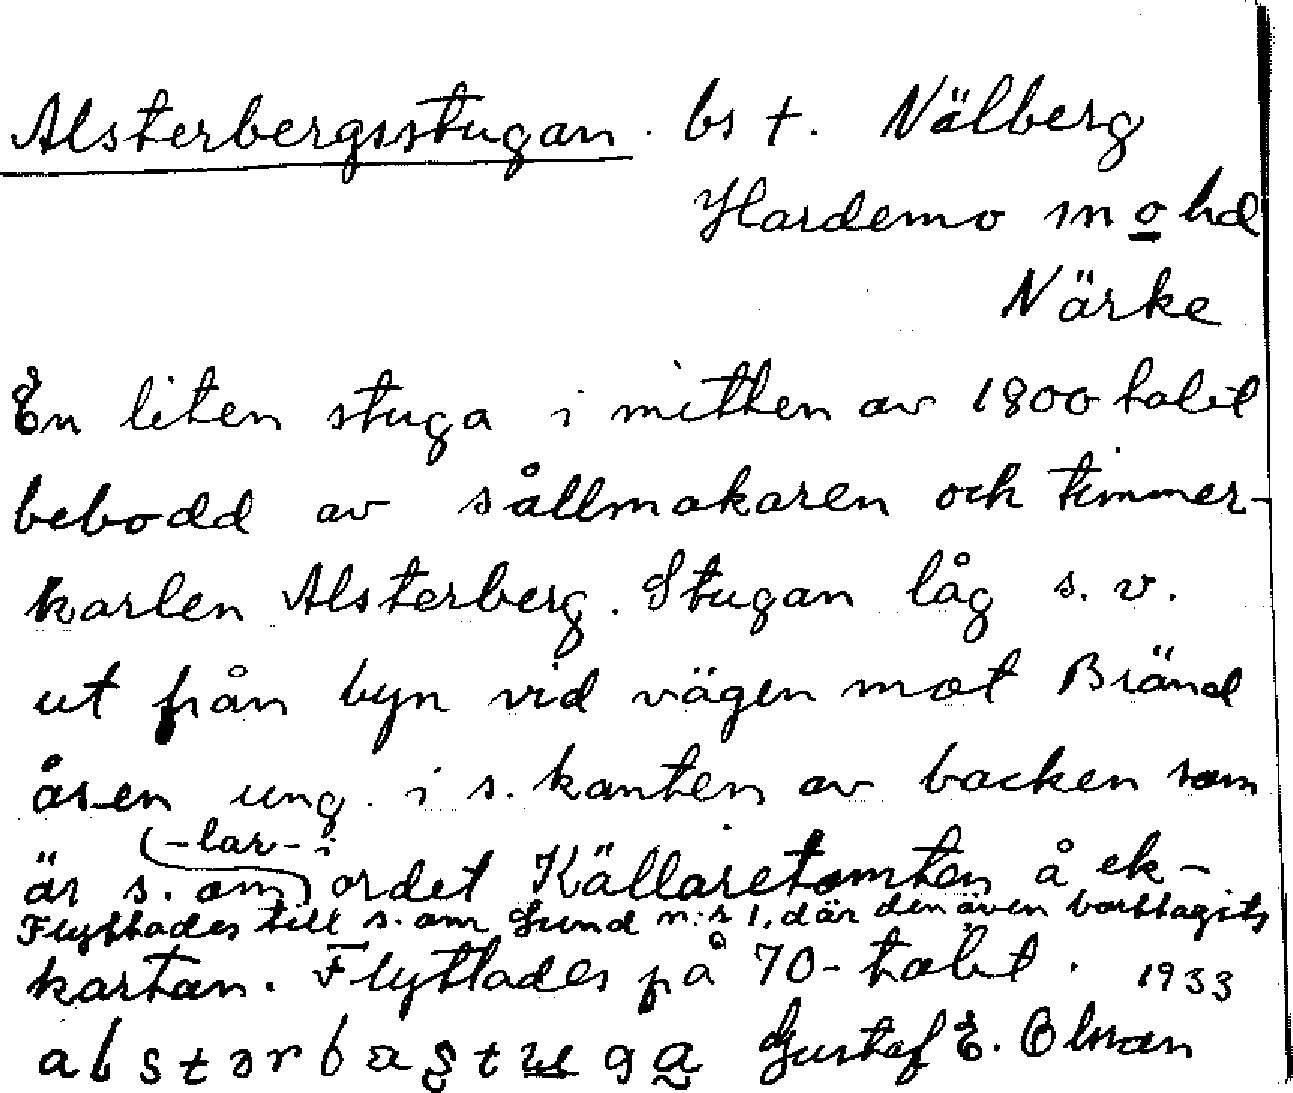 Alsterbergsstugan. bs †. Nälberg
Hardemo sn o hd
Närke
En liten stuga i mitten av 1800 talet
bebodd av sållmakaren och timmer-
karlen Alsterberg. Stugan låg s. v.
ut från byn vid vägen mot Bränd
åsen ung. i s. kanten av backen som
(-lar- i
är s. om) ordet Källaretomten å ek-
Flyttades till s. om Lund n:r 1, där den även borttagits
kartan. Flyttades på 70-talet. 1933
Gustaf E. Olsson